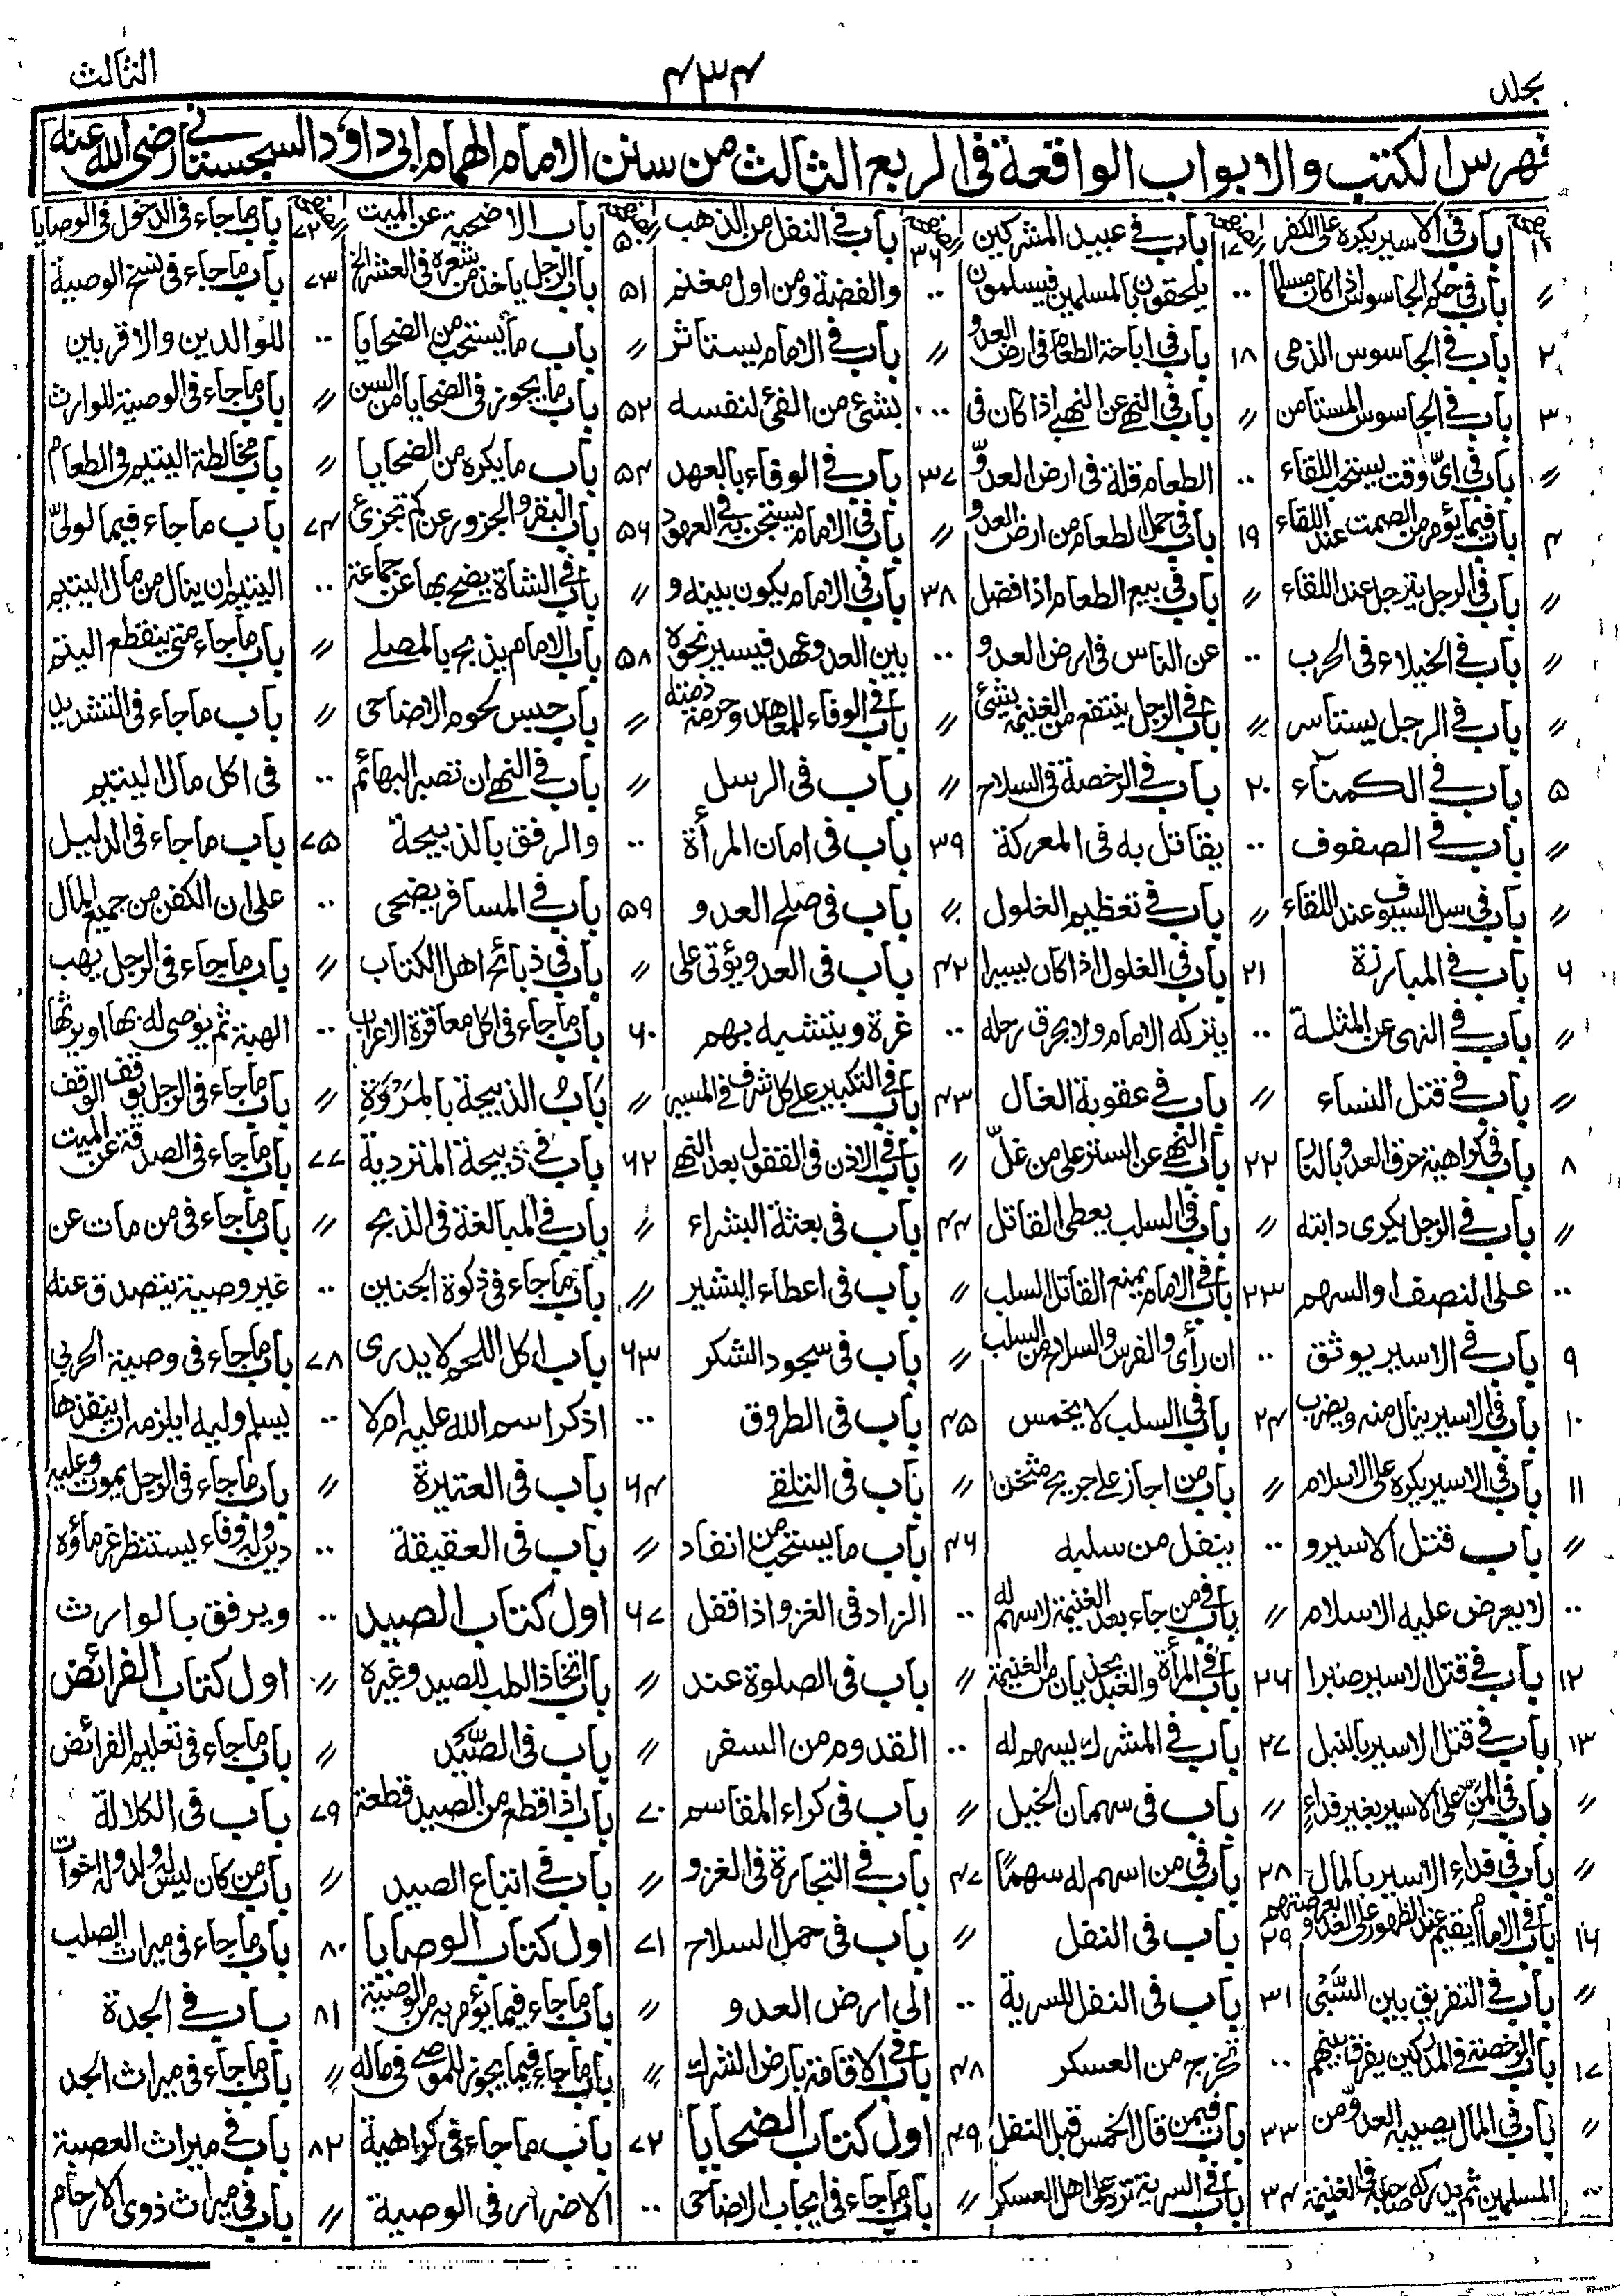 جلد
۴۳۴
الثالث
فهرس الكتب والابواب الواقعة فى الربع الثالث من سنن الامام الهمام ابى داؤد السجستانى رضى الله عنه
باب فى الاسير يكره على الكفر
〃 باب فى حكم الجاسوس اذا كان مسلما
۲ باب فى الجاسوس الذمى
۳ باب فى الجاسوس المستامن
〃 باب فى اىّ وقت يستحب اللقاء
۴ باب فيما يؤمر من الصمت عند اللقاء
〃 باب فى الرجل يترجل عند اللقاء
〃 باب فى الخيلاء فى الحرب
〃 باب فى الرجل يستاسر
۵ باب فى الكمناء
〃 باب فى الصفوف
〃 باب فى سل السيوف عند اللقاء
۶ باب فى المبارزة
〃 باب فى النهى عن المثلة
〃 باب فى قتل النساء
۸ باب فى كراهية حرق العدو بالنار
〃 باب فى الرجل يكرى دابته
.. على النصف او السهم
۹ باب فى الاسير يوثق
۱۰ باب فى الاسير ينال منه ويضرب
۱۱ باب فى الاسير يكره على الاسلام
〃 باب قتل الاسير و
.. لا يعرض عليه الاسلام
۱۲ باب فى قتل الاسير صبرا
۱۳ باب فى قتل الاسير بالنبل
〃 باب فى المنّ على الاسير بغير فداء
〃 باب فى فداء الاسير بالمال
۱۴ باب فى الامام يقيم عند الظهور على العدو بعرصتهم
〃 باب فى التفريق بين السَّبْى
۱۷ باب الرخصة فى المدركين يفرق بينهم
〃 باب فى المال يصيبه العدو من
.. المسلمين ثم يدركه صاحبه فى الغنيمة
۱۷ باب فى عبيد المشركين
.. يلحقون بالمسلمين فيسلمون
۱۸ باب فى اباحة الطعام فى ارض العدو
〃 باب فى النهى عن النهبى اذا كان فى
.. الطعام قلة فى ارض العدوّ
۱۹ باب فى حمل الطعام من ارض العدو
〃 باب فى بيع الطعام اذا فضل
.. عن الناس فى ارض العدو
〃 باب فى الرجل ينتفع من الغنيمة بشئ
۲۰ باب فى الرخصة فى السلاح
.. يقاتل به فى المعركة
〃 باب فى تعظيم الغلول
۲۱ باب فى الغلول اذا كان يسيرا
.. يتركه الامام ولا يحرق رحله
〃 باب فى عقوبة الغال
۲۲ باب النهى عن الستر على من غلّ
〃 باب فى السلب يعطى القاتل
۲۳ باب فى الامام يمنع القاتل السلب
.. ان رأى والفرس والسلاح من السلب
۲۴ باب فى السلب لا يخمس
〃 باب من اجاز على جريح مثخن
.. ينفل من سلبه
〃 باب فى من جاء بعد الغنيمة لا سهم له
۲۶ باب فى المرأة والعبد يحذيان من الغنيمة
۲۷ باب فى المشرك يسهم له
〃 باب فى سهمان الخيل
۲۸ باب فى من اسهم له سهمًا
۲۹ باب فى النفل
۳۱ باب فى النفل للسرية
.. تخرج من العسكر
۳۳ باب فيمن قال الخمس قبل النفل
۳۴ باب فى السرية ترد على اهل العسكر
۳۶ باب فى النفل من الذهب
.. والفضة ومن اول مغنم
〃 باب فى الامام يستاثر
... بشئ من الفئ لنفسه
۳۷ باب فى الوفاء بالعهد
〃 باب فى الامام يستجن به فى العهود
۳۸ باب فى الامام يكون بينه و
.. بين العدو عهد فيسير نحوه
〃 باب فى الوفاء للمعاهد وحرمة ذمته
〃 باب فى الرسل
۳۹ باب فى امان المرأة
〃 باب فى صلح العدو
۴۲ باب فى العدو يؤتى على
.. غرة ويتشبه بهم
۴۳ باب فى التكبير على كل شرف فى المسير
〃 باب فى الاذن فى القفول بعد النهى
۴۴ باب فى بعثة البشراء
〃 باب فى اعطاء البشير
〃 باب فى سجود الشكر
۴۵ باب فى الطروق
〃 باب فى التلقى
۴۶ باب ما يستحب من انفاد
.. الزاد فى الغزو اذا قفل
〃 باب فى الصلوة عند
.. القدوم من السفر
〃 باب فى كراء المقاسم
۴۷ باب فى التجارة فى الغزو
〃 باب فى حمل السلاح
.. الى ارض العدو
۴۸ باب فى الاقامة بارض الشرك
۴۹ اول كتاب الضحايا
〃 باب ما جاء فى ايجاب الاضاحى
۵۰ باب الاضحية عن الميت
۵۱ باب الرجل ياخذ من شعره فى العشر الخ
〃 باب ما يستحب من الضحايا
۵۲ باب ما يجوز فى الضحايا من السن
۵۴ باب ما يكره من الضحايا
۵۶ باب البقر والجزور عن كم تجزئ
〃 باب فى الشاة يضحى بها عن جماعة
۵۸ باب الامام يذبح بالمصلى
〃 باب حبس لحوم الاضاحى
〃 باب فى النهى ان تصبر البهائم
.. والرفق بالذبيحة
۵۹ باب فى المسافر يضحى
〃 باب فى ذبائح اهل الكتاب
۶۰ باب ما جاء فى اكل معاقرة الاعراب
〃 باب الذبيحة بالمروة
۶۲ باب فى ذبيحة المتردية
〃 باب فى المبالغة فى الذبح
〃 باب ما جاء فى ذكوة الجنين
۶۳ باب اكل اللحم لا يدرى
.. اذكر اسم الله عليه ام لا
۶۴ باب فى العتيرة
〃 باب فى العقيقة
۶۷ اول كتاب الصيد
〃 باب اتخاذ الكلب للصيد وغيره
〃 باب فى الصَّيْد
۷۰ باب اذا قطع من الصيد قطعة
〃 باب فى اتباع الصيد
۷۱ اول كتاب الوصايا
〃 باب ما جاء فيما يؤمر به من الوصية
〃 باب ما جاء فيما يجوز للموصى فى ماله
۷۲ باب ما جاء فى كراهية
.. الاضرار فى الوصية
۷۲ باب ما جاء فى الدخول فى الوصايا
۷۳ باب ما جاء فى نسخ الوصية
.. للوالدين والاقربين
〃 باب ما جاء فى الوصية للوارث
〃 باب مخالطة اليتيم فى الطعام
۷۴ باب ما جاء فيما لولىّ
.. اليتيم ان ينال من مال اليتيم
〃 باب ما جاء متى ينقطع اليتم
〃 باب ما جاء فى التشديد
.. فى اكل مال اليتيم
۷۵ باب ما جاء فى الدليل
.. على ان الكفن من جميع المال
〃 باب ما جاء فى الرجل يهب
.. الهبة ثم يوصى له بها او يرثها
〃 باب ما جاء فى الرجل يوقف الوقف
۷۷ باب ما جاء فى الصدقة عن الميت
〃 باب ما جاء فى من مات عن
.. غير وصية يتصدق عنه
۷۸ باب ما جاء فى وصية الحربى
.. يسلم وليه ايلزمه ان ينفذها
〃 باب ما جاء فى الرجل يموت وعليه
.. دين وله وفاء يستنظر غرماؤه
.. ويرفق بالوارث
اول كتاب الفرائض
〃 باب ما جاء فى تعليم الفرائض
۷۹ باب فى الكلالة
〃 باب من كان ليس له ولد وله اخوات
۸۰ باب ما جاء فى ميراث الصلب
۸۱ باب فى الجدة
〃 باب ما جاء فى ميراث الجد
۸۲ باب فى ميراث العصبة
〃 باب فى ميراث ذوى الارحام